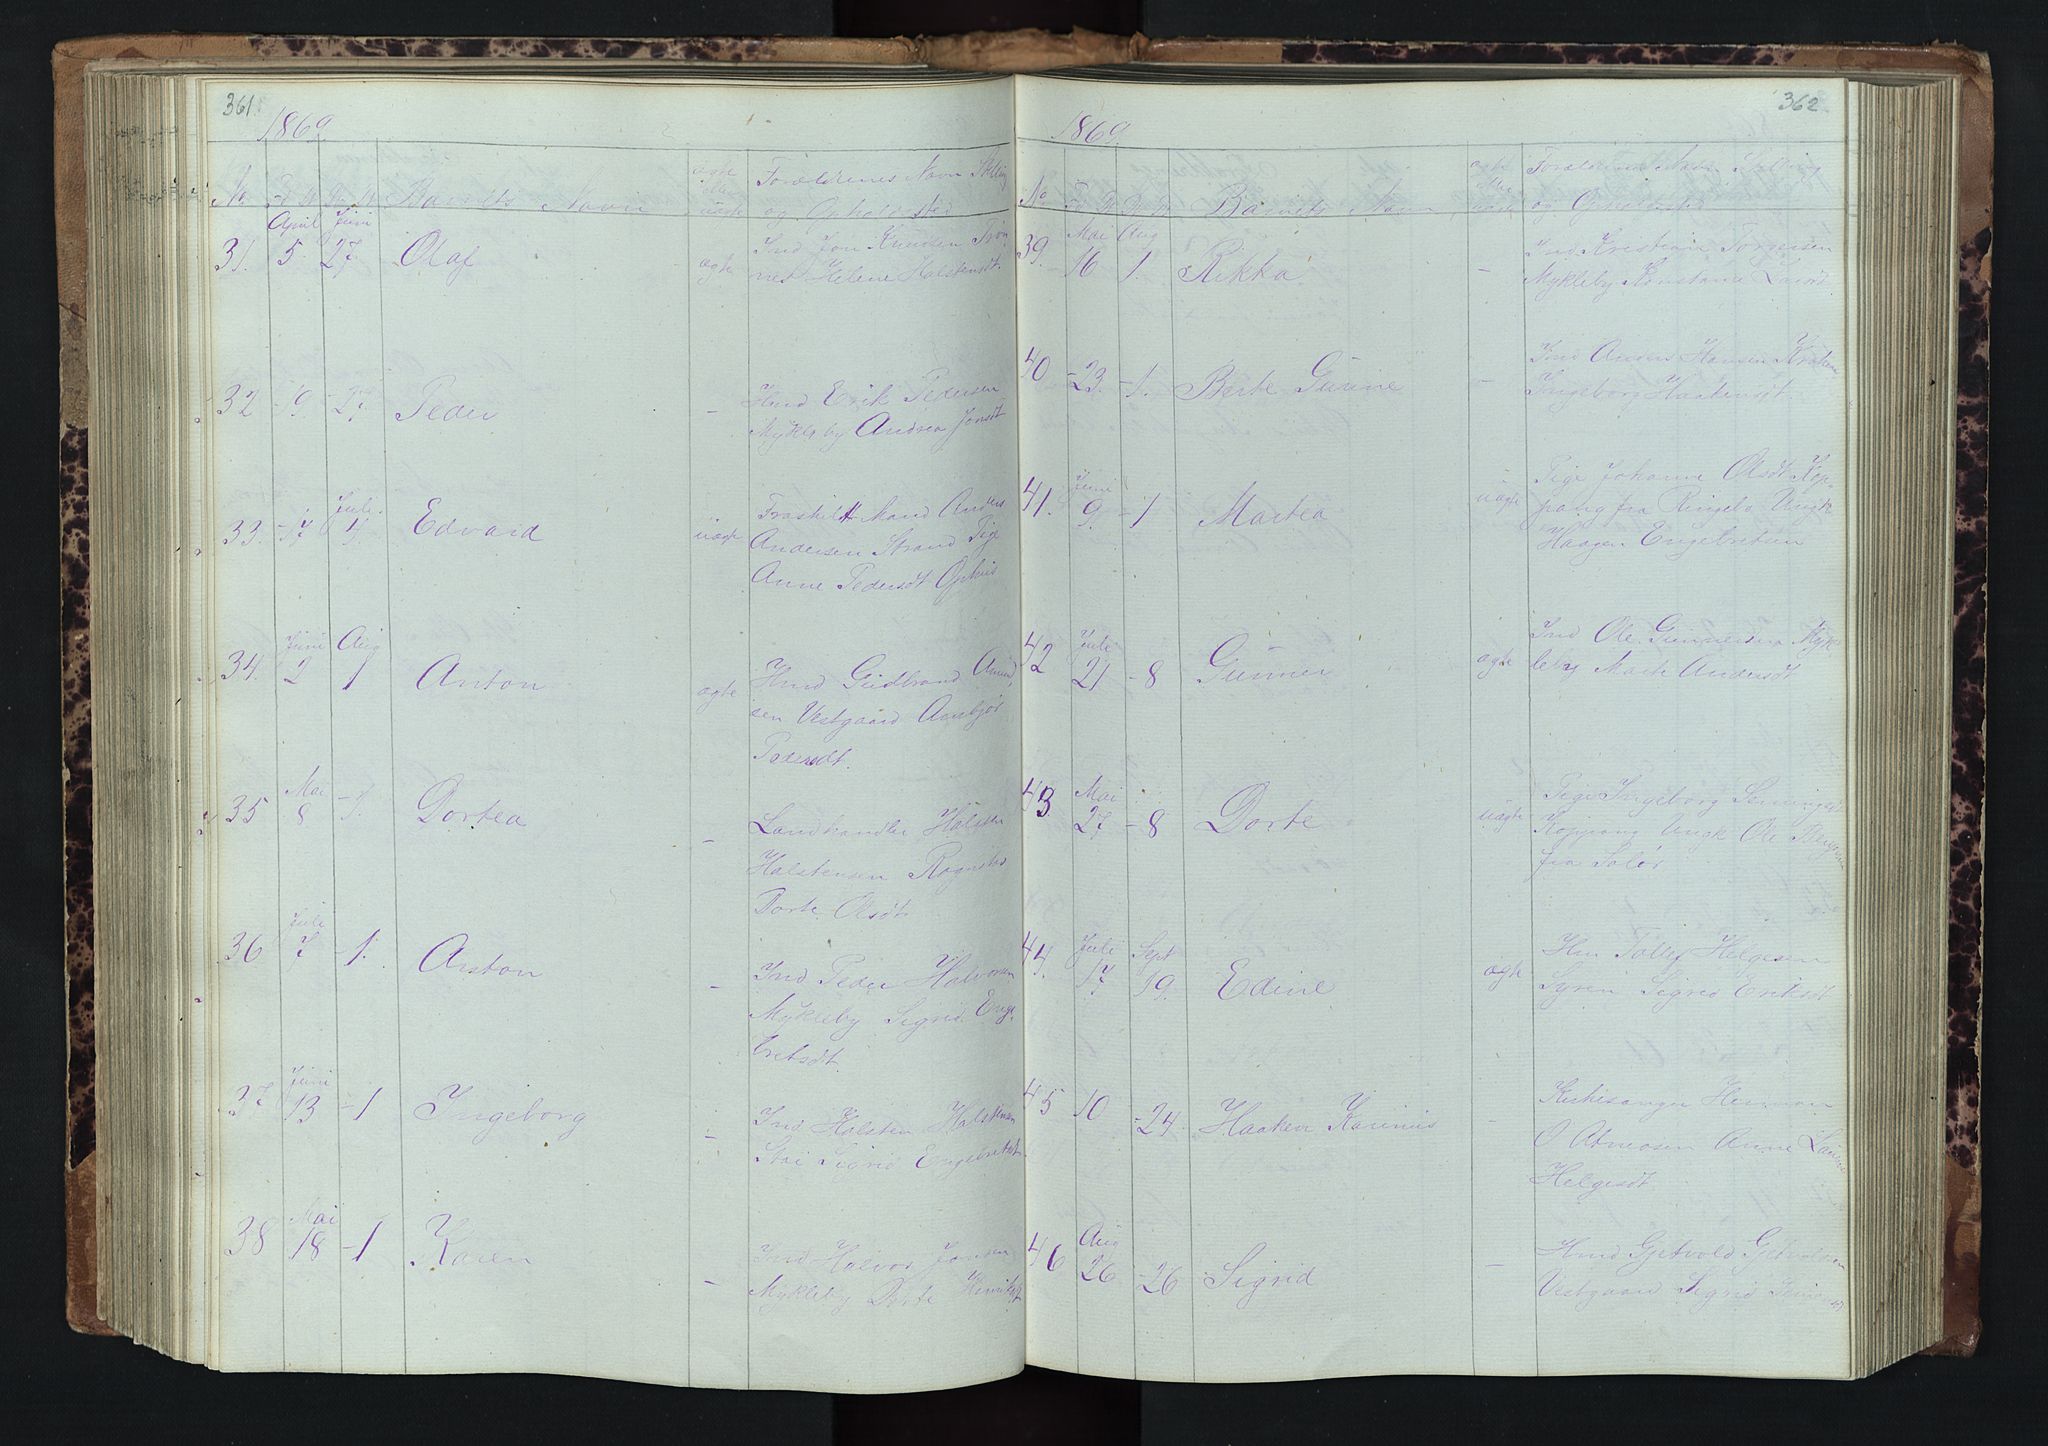 361.
1869
No F D M D M Barnets Navn ægte eller uægte Forældrenes Navn Stilling
og Opholdsted
April Juni
31. 5. 27. Olaf ægte Ind Jon Knudsen Trøn-
nes Helene Halstensdt.
32 - 9 - 27 Peder - Hmd Erik Pedersen
Mykleby Andrea Jonsdt
Juli
33. - 17 4. Edvard uægte Fraskilt Mand Anders
Andersen Strand Pige
Anne Pedersdt Ophus
Juni Aug
34. 2 1 Anton ægte Hmd Gudbrand Amund
sen Vestgaard Ambjør
Pedersdt.
Mai
35 8 - 1. Dortea - Landhandler Halsten
Halstensen
Dorte Olsdt
Juli
36 7 - 1. Anton - Ind Peder Halvorsen
Mykleby Sigrid Enge-
bretsdt.
Juni
37 13 - 1 Ingeborg - Ind Halsten Halstensen
Stai Sigrid Engebretsdt.
Mai
38 18 - 1 Karen - Ind Halvor Jonsen
Mykleby Dorte Henriksdt
362
1869
No F D M D M Barnets Navn ægte eller uægte Forældrenes Navn Stilling
og Opholdsted
Mai Aug
39. 16 1. Rikka - Ind Kristian Torgersen
Mykleby Konstanse
40 - 23. - 1. Berte Gunine - Ind Anders Hansen
Ingeborg Haakensdt.
Juni
41. 9. - 1 Martea uægte Pige Johanne Olsdt Kop-
pang fra Ringebo Ungk
Haagen Engebretsen
Juli
42 21 - 8 Gunner ægte Ind Ole Gunnersen Myk-
leby Marte Andersdt
Mai
43 27 - 8 Dorte uægte Pige Ingeborg
Koppang Ungk Ole
fra Solør
Juli Sept
44. 17 19. Edine ægte Hm Tollef Helgesen
Syren Sigrid Eriksdt
45 10 - 24. Haaken Karinius - Kirkesanger Herman
O Atneosen Anne
Helgesdt
Aug
46 26 - 26 Sigrid - Hmd Gjetvold Gjetvoldsen
Vestgaard Sigrid